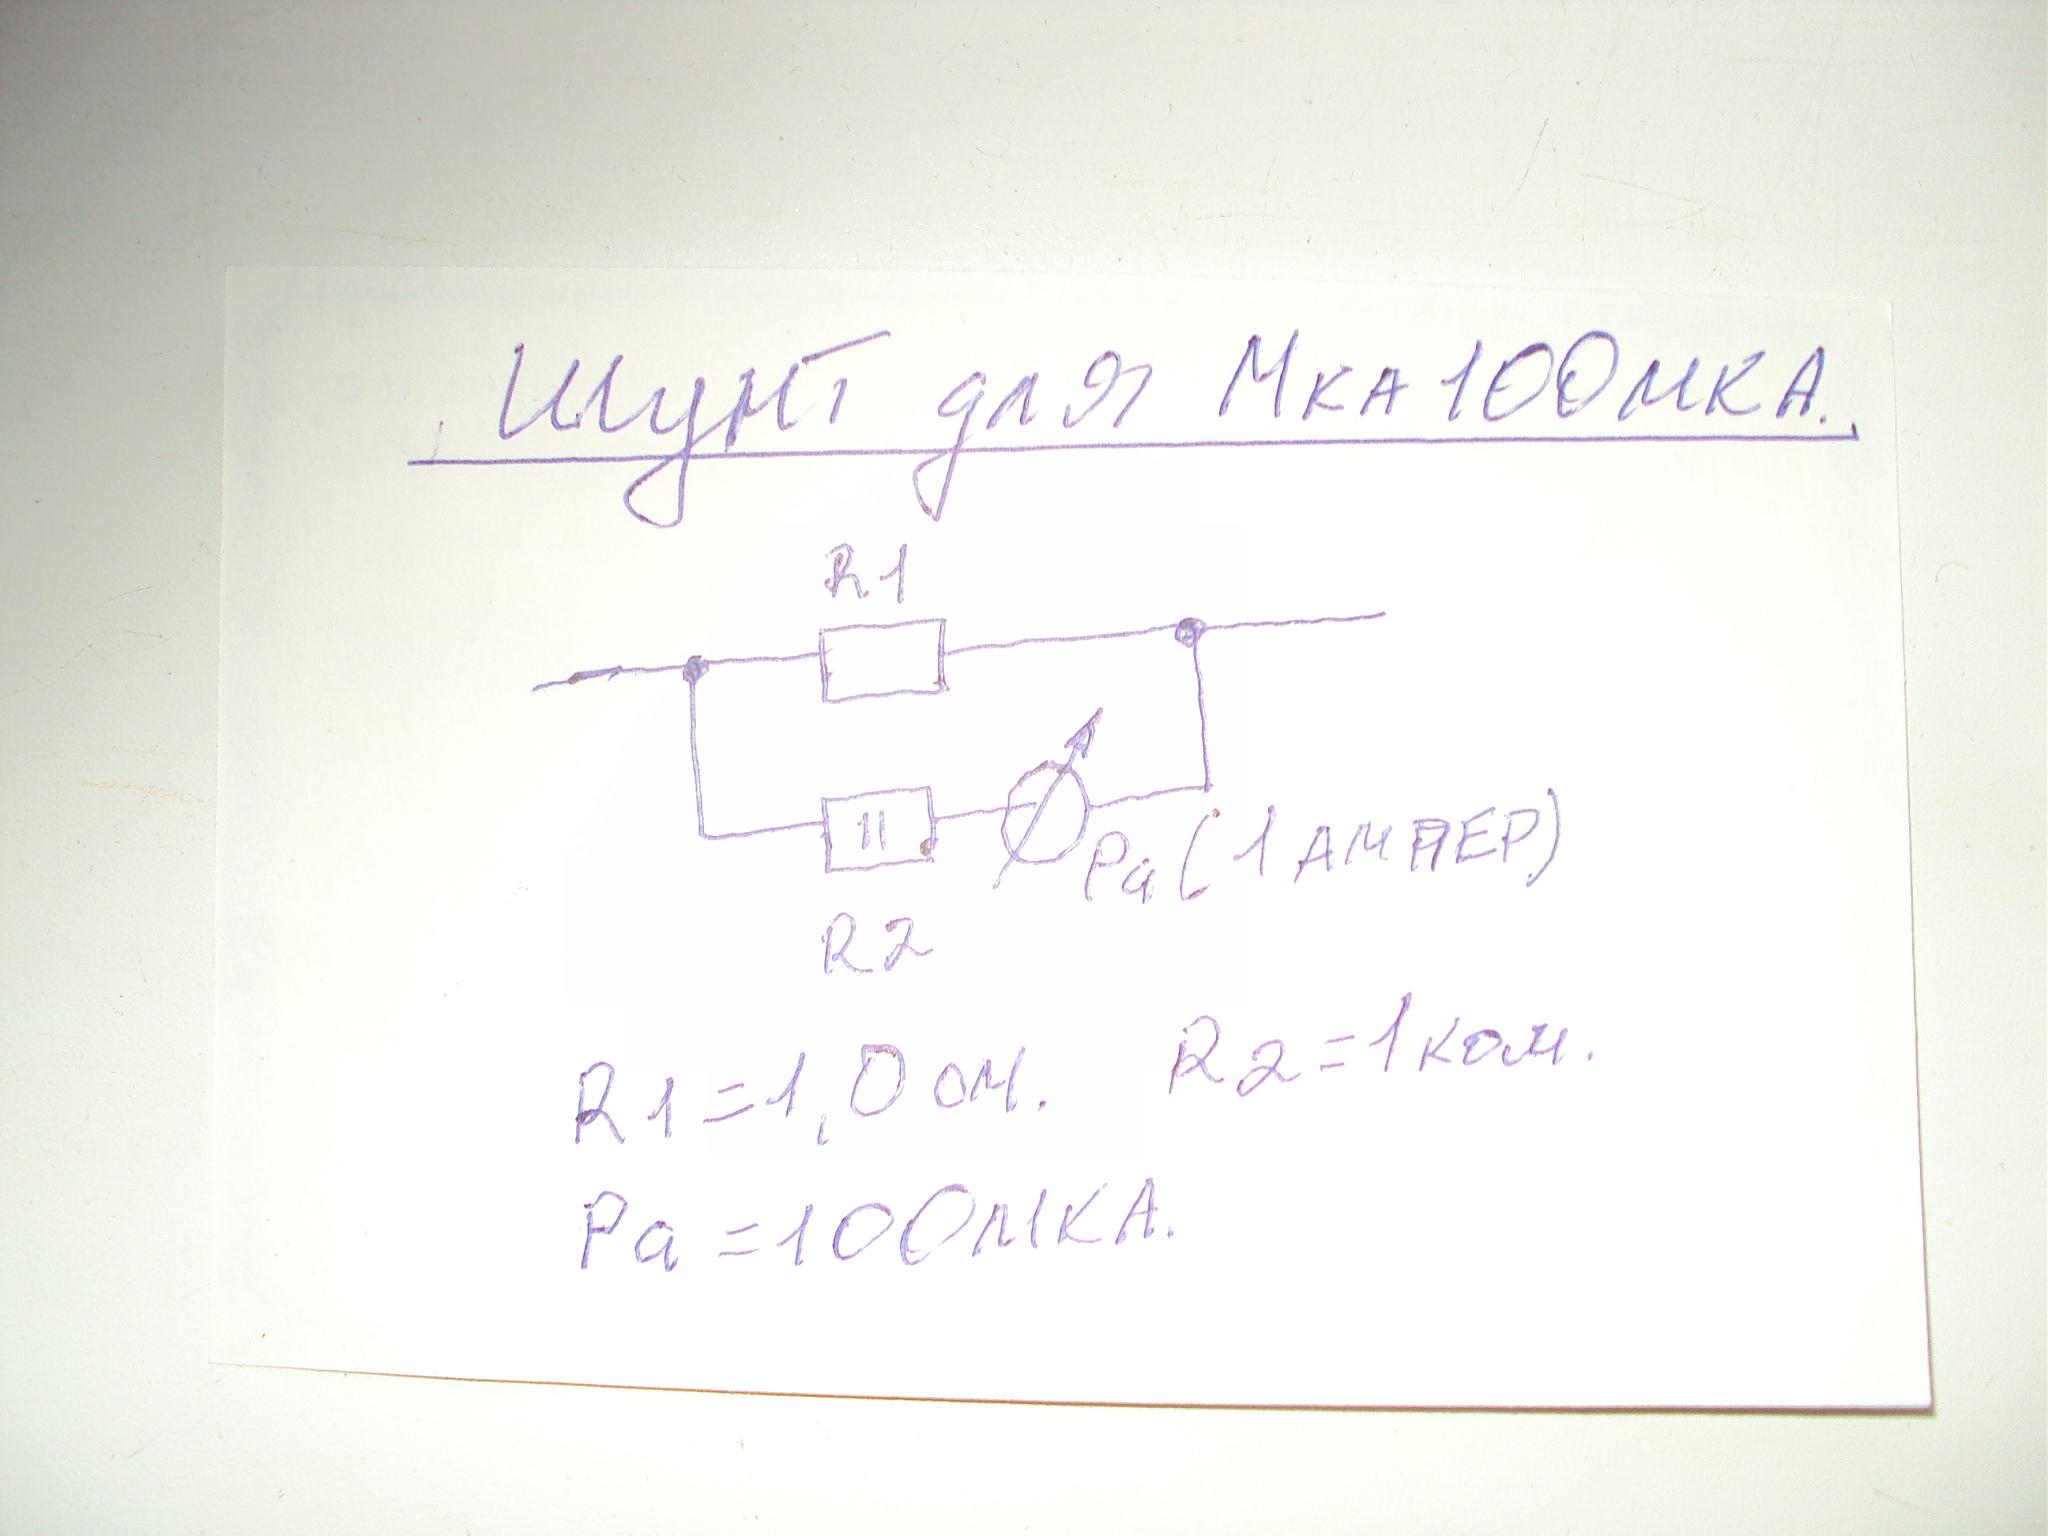 Шунт для Мка 100мкА.
R1
II
Pa (1 АМПЕР)
R2
R1=1,0 ом. R2=1ком.
Pa=100мкА.